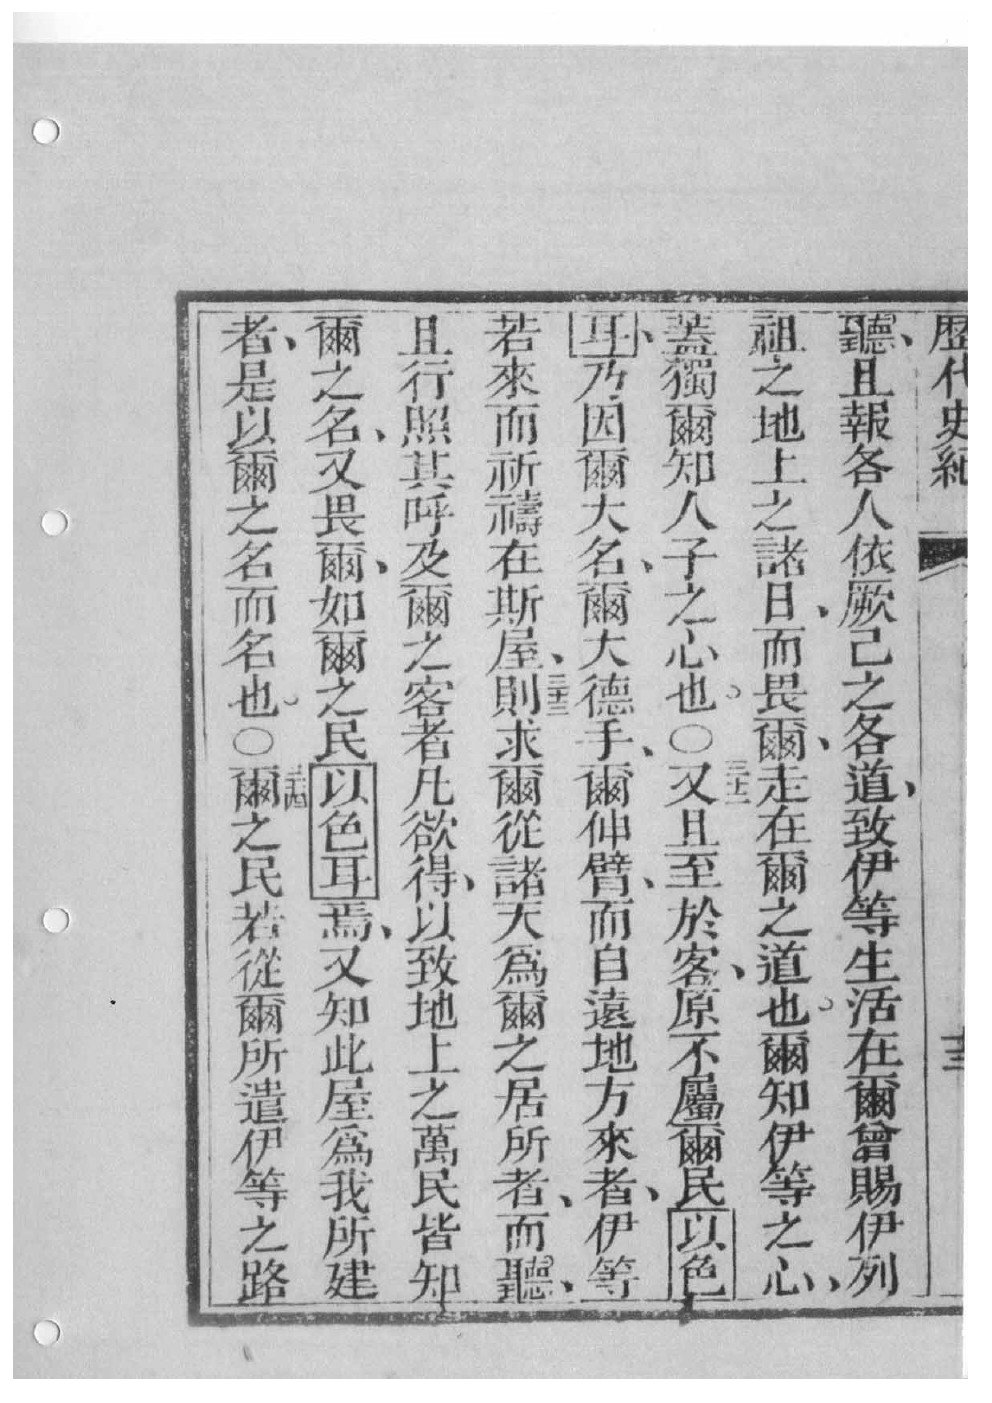 歷代史紀
十三
聽、且報各人依厥己之各道、致伊等生活在爾曾賜伊列
祖之地上之諸日、而畏爾、走在爾之道也爾知伊等之心、
蓋獨爾知人子之心也○三十二又且至於客、原不屬爾民以色
耳、乃因爾大名、爾大德手、爾伸臂、而自遠地方來者、伊等
若來而祈禱在斯屋、三十三則求爾從諸天爲爾之居所者、而聽、
且行照其呼及爾之客者凡欲得、以致地上之萬民皆知
爾之名、又畏爾、如爾之民以色耳焉、又知此屋爲我所建
者、是以爾之名而名也○三十四爾之民若從爾所遣伊等之路